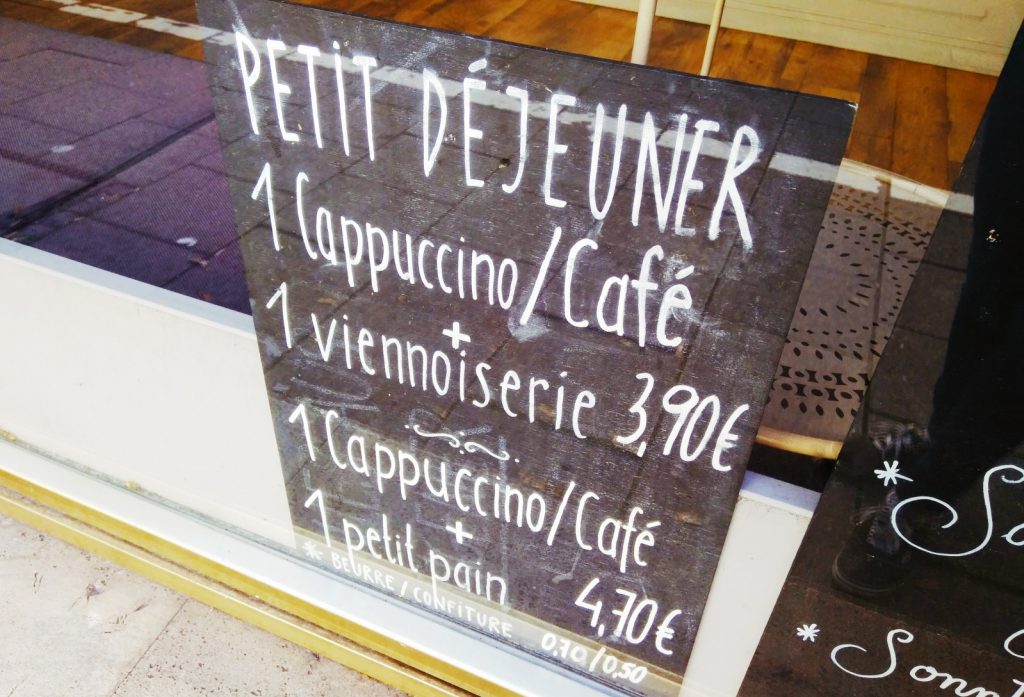 PETIT DÉJEUNER
1 Cappuccino/Café
+
1 viennoiserie 3,90€
1 Cappuccino/Café
+
1 petit pain 4,70€
* BEURRE/CONFITURE 0,70/0,50
*
*